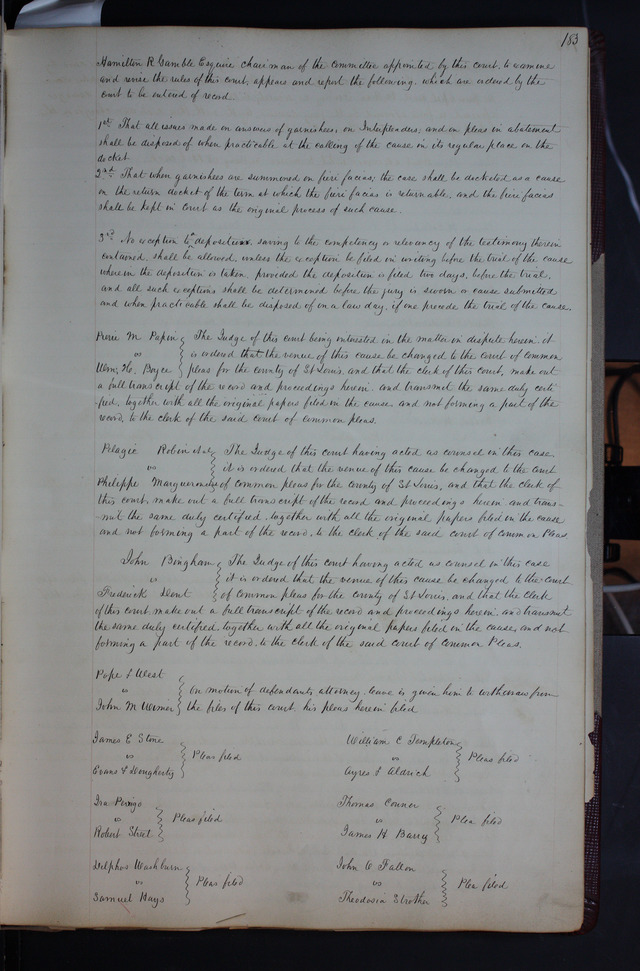 183
Hamilton R Gamble Esquire chairman of the committee appointed by this court, to examine
and revise the rules of this court, appears and report the following, which are ordered by the
court to be entered of record
1st That all issues made on answers of garnishees, on Interpleaders, and on pleas in abatement
shall be disposed of when practicable at the calling of the cause in its regular place on the
docket
2nd That when garnishees are summoned on fieri facias, the case shall be docketed as a cause
on the return docket of the term at which the fieri facias is returnable, and the fieri facias
shall be kept in court as the original process of such cause.
3rd No exception to depositions saving to the competency or relevancy of the testimony therein
contained, shall be allowed, unless the exception be filed in writing before the trial of the cause
wherein the deposition is taken, provided the deposition is filed two days, before the trial,
and all such exceptions shall be determined before the jury is sworn or cause submitted
and when practicable shall be disposed of on a law day, if one precede the trial of the cause.
Pierre M Papin
vs
Wm. H. Boyce
The Judge of this court being interested in the matter in dispute herein, it
is ordered that the venue of this cause be changed to the court of common
pleas for the county of St Louis, and that the clerk of this court, make out
a full transcript of the record and proceedings herein and transmit the same duly certi
fied, together with all the original papers filed in the cause and not forming a part of the
record, to the clerk of the said court of common pleas.
Pelagie Robin et al
vs
Philippe
The Judge of this court having acted as counsel in this case,
it is ordered that the venue of this cause be changed to the court
of common pleas for the county of St Louis, and that the clerk of
this court, make out a full transcript of the record and proceedings herein and trans-
-mit the same duly certified, together with all the original papers filed in the cause
and not forming a part of the record, to the clerk of the said court of common Pleas
John Bingham
vs
Frederick Dent
The Judge of this court having acted as counsel in this case
it is ordered that the venue of this cause be changed to the court
of common pleas for the county of St Louis, and that the clerk
of this court, make out a full transcript of the record and proceedings herein, and transmit
the same duly certified, together with all the original papers filed in the cause, and not
forming a part of the record, to the clerk of the said court of common Pleas.
Pope & West
vs
John M Wimer
On motion of defendants attorney, leave is given him to withdraw from
the files of this court, his pleas herein filed
James E Stone
vs
Evans & Dougherty
Pleas filed
William C Templeton
vs
Ayres & Aldrich
Pleas filed
Ira
vs
Robert Street
Pleas filed
Thomas Conner
vs
James H Barry
Plea filed
Delphos Washburn
vs
Samuel Hays
Pleas filed
John W Fallon
vs
Theodosia Strother
Plea filed